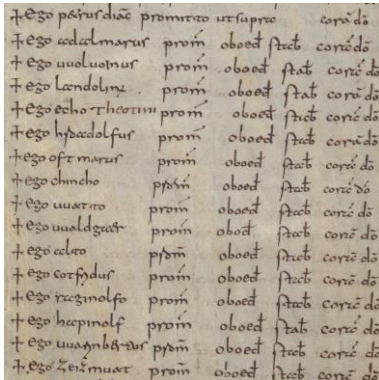 + ego petrus diac̄ promitto ut supra corā dō
+ ego adalmarus prom̄ oboed̄ stab̄ corā dō
+ ego uuoluoinus prom̄ oboed̄ stab̄ corā dō
+ ego prom̄ oboed̄ stab̄ corā dō
+ ego echo prom̄ oboed̄ stab̄ corā dō
+ ego prom̄ oboed̄ stab̄ corā dō
+ ego oftmarus prom̄ oboed̄ stab̄ corā dō
+ ego chincho prom̄ oboed̄ stab̄ corā dō
+ ego uuatito prom̄ oboed̄ stab̄ corā dō
+ ego uualdger prom̄ oboed̄ stab̄ corā dō
+ ego prom̄ oboed̄ stab̄ corā dō
+ ego prom̄ oboed̄ stab̄ corā dō
+ ego raginolfo prom̄ oboed̄ stab̄ corā dō
+ ego heepinolf prom̄ oboed̄ stab̄ corā dō
+ ego prom̄ oboed̄ stab̄ corā dō
+ ego zeizmuat prom̄ oboed̄ stab̄ corā dō